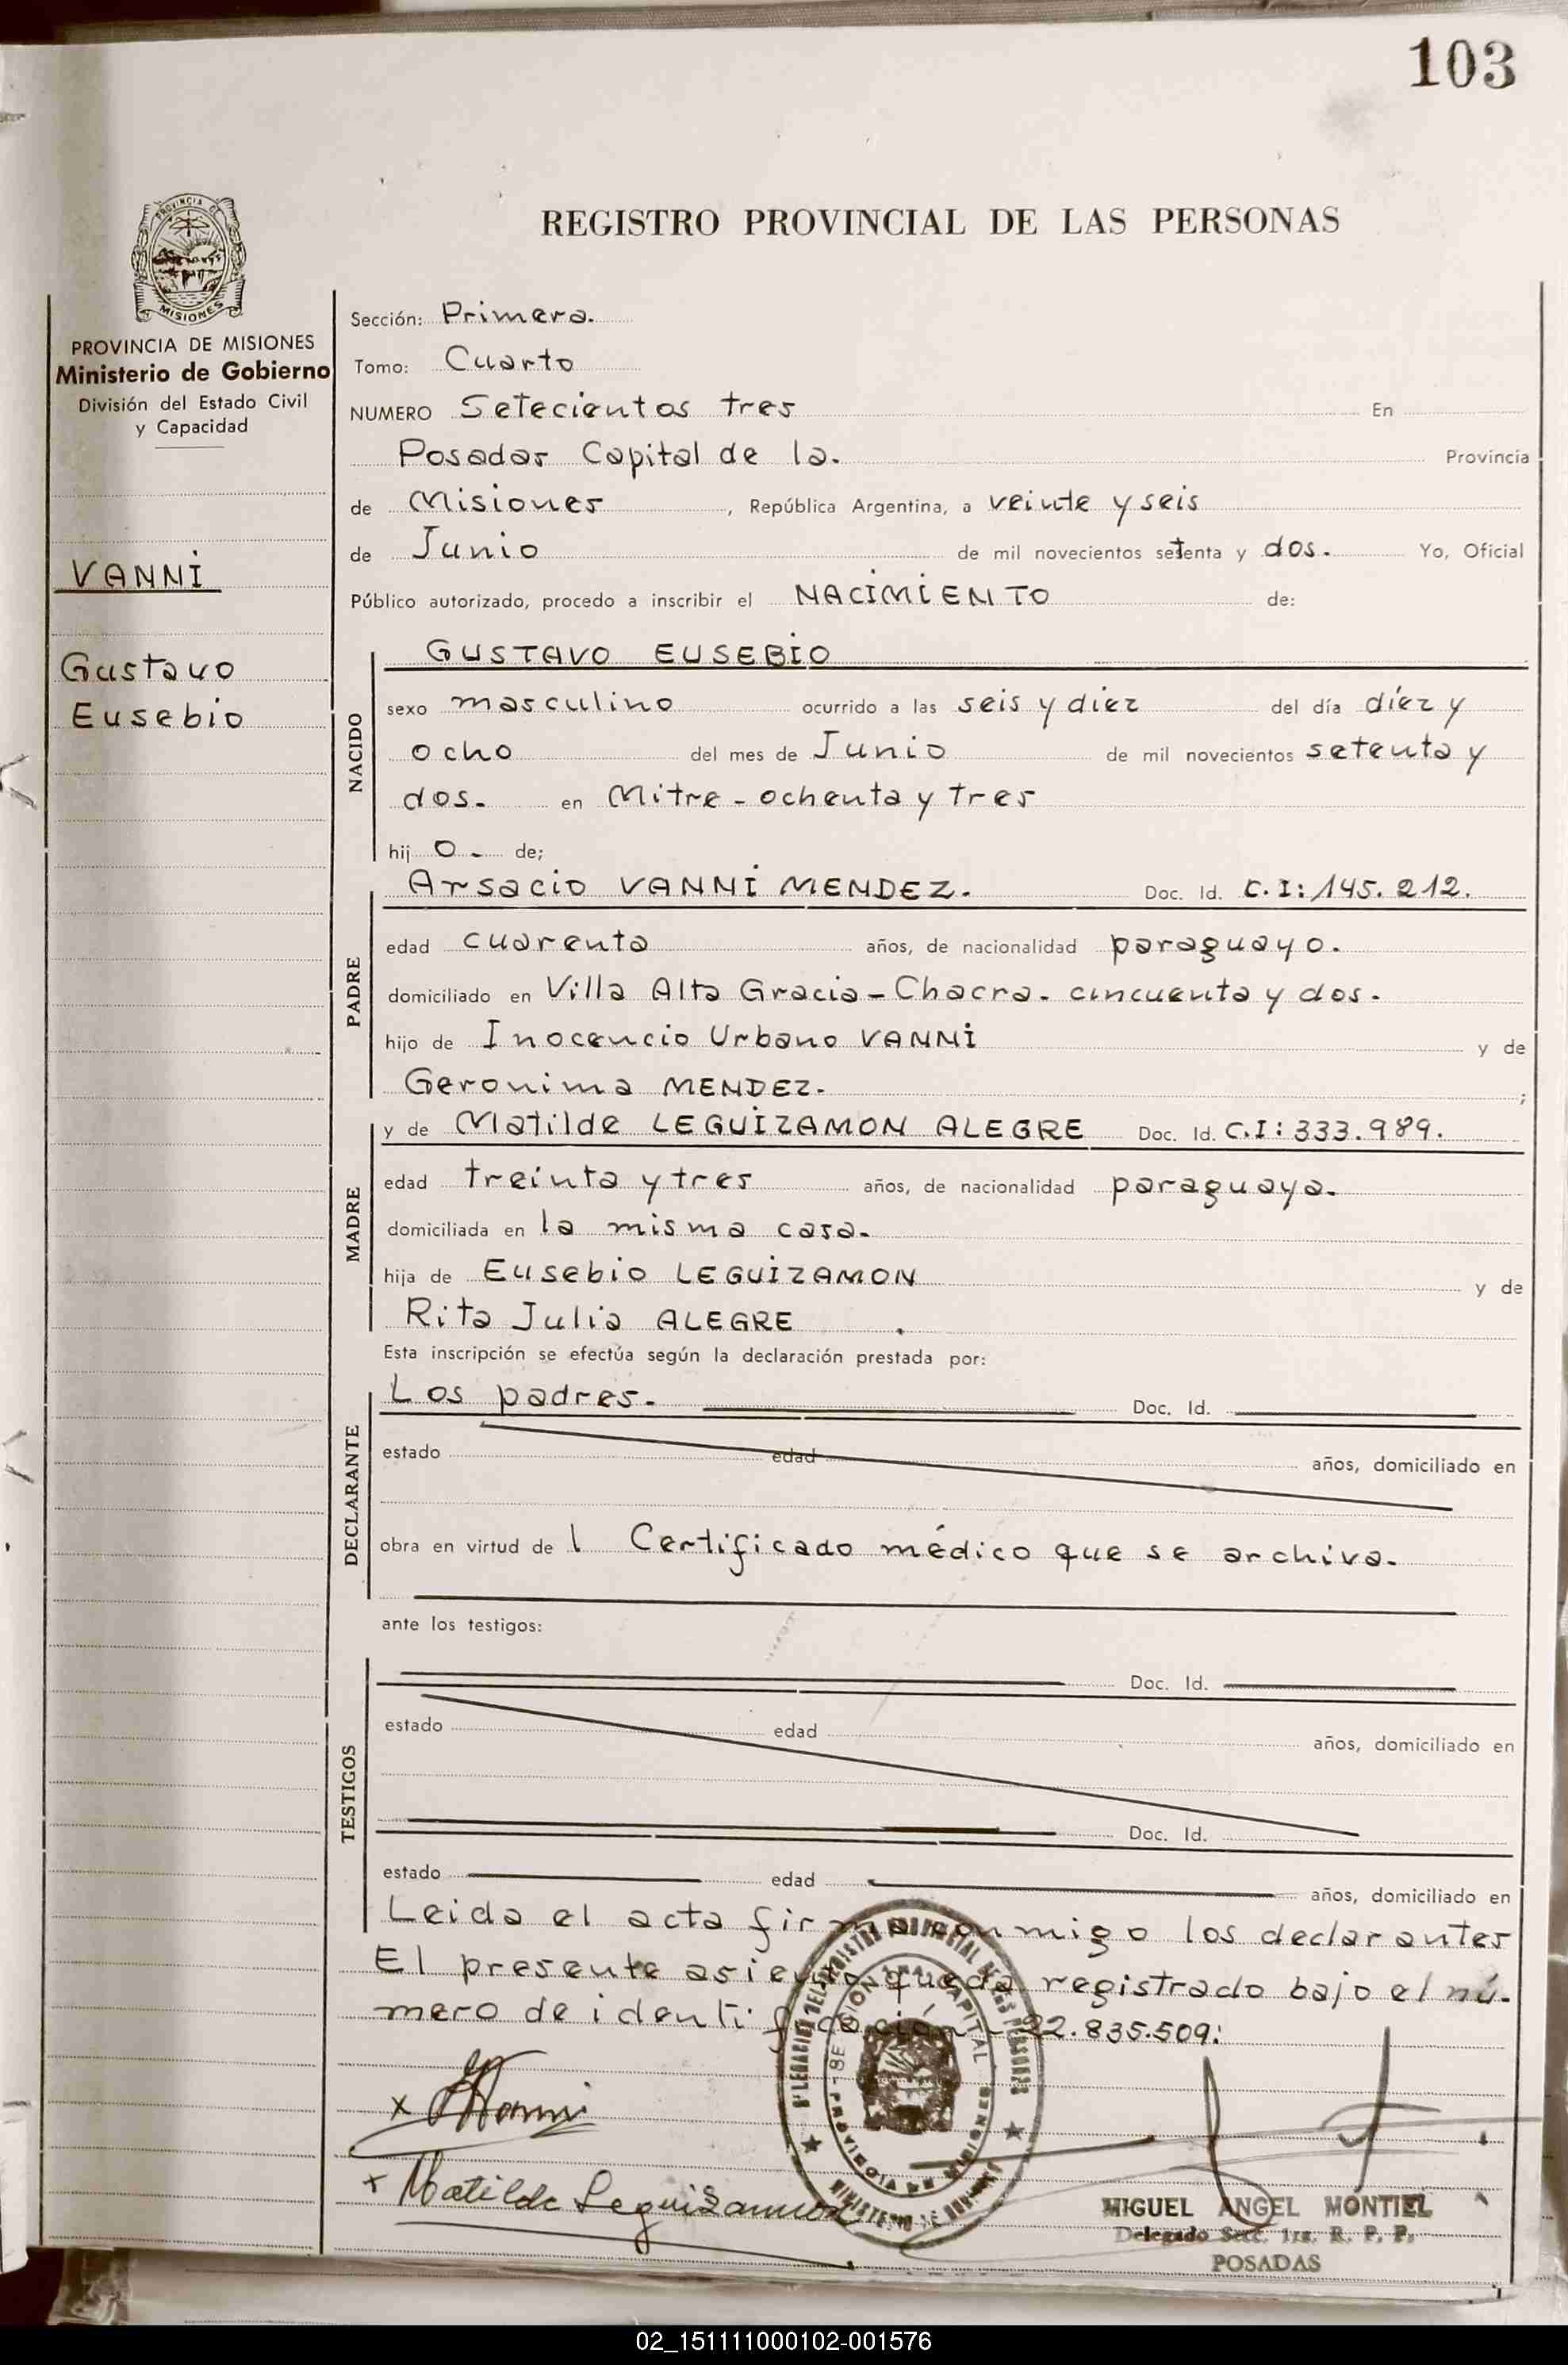 103
REGISTRO PROVINCIAL DE LAS PERSONAS
PROVINCIA DE
MISIONES
PROVINCIA DE MISIONES
Ministerio de Gobierno
División del Estado Civil
y Capacidad
VANNI
Gustavo
Eusebio
Sección: Primera.
Tomo: Cuarto
NUMERO Setecientos tres En
Posadas Capital de la. Provincia
de Misiones, República Argentina, a veinte y seis
de Junio de mil novecientos setenta y dos. Yo, Oficial
Público autorizado, procedo a inscribir el NACIMIENTO de:
NACIDO
GUSTAVO EUSEBIO
sexo masculino ocurrido a las seis y diez del día diez y
ocho del mes de Junio de mil novecientos setenta y
dos. en Mitre - ochenta y tres
hij o. de;
PADRE
Arsacio VANNI MENDEZ. Doc. Id. C.I: 145.212.
edad cuarenta años, de nacionalidad paraguayo.
domiciliado en Villa Alta Gracia - Chacra. cincuenta y dos.
hijo de Inocencio Urbano VANNI y de
Geronima MENDEZ. ;
MADRE
y de Matilde LEGUIZAMON ALEGRE Doc. Id. C.I: 333.989.
edad treinta y tres años, de nacionalidad paraguaya.
domiciliada en la misma casa.
hija de Eusebio LEGUIZAMON y de
Rita Julia ALEGRE .
Esta inscripción se efectúa según la declaración prestada por:
DECLARANTE
Los padres. Doc. Id.
estado edad años, domiciliado en
obra en virtud de l Certificado médico que se archiva.
ante los testigos:
TESTIGOS
Doc. Id.
estado edad años, domiciliado en
Doc. Id.
estado edad años, domiciliado en
Leida el acta firma conmigo los declarantes
El presente asiento queda registrado bajo el nú-
mero de identificación - 22.835.509.
x Vanni
x Matilde Leguizamon
PROVINCIA DE MISIONES
MINISTERIO DE
MIGUEL ANGEL MONTIEL
Delegado Secc. 1ra. R. P. P.
POSADAS
02_151111000102-001576